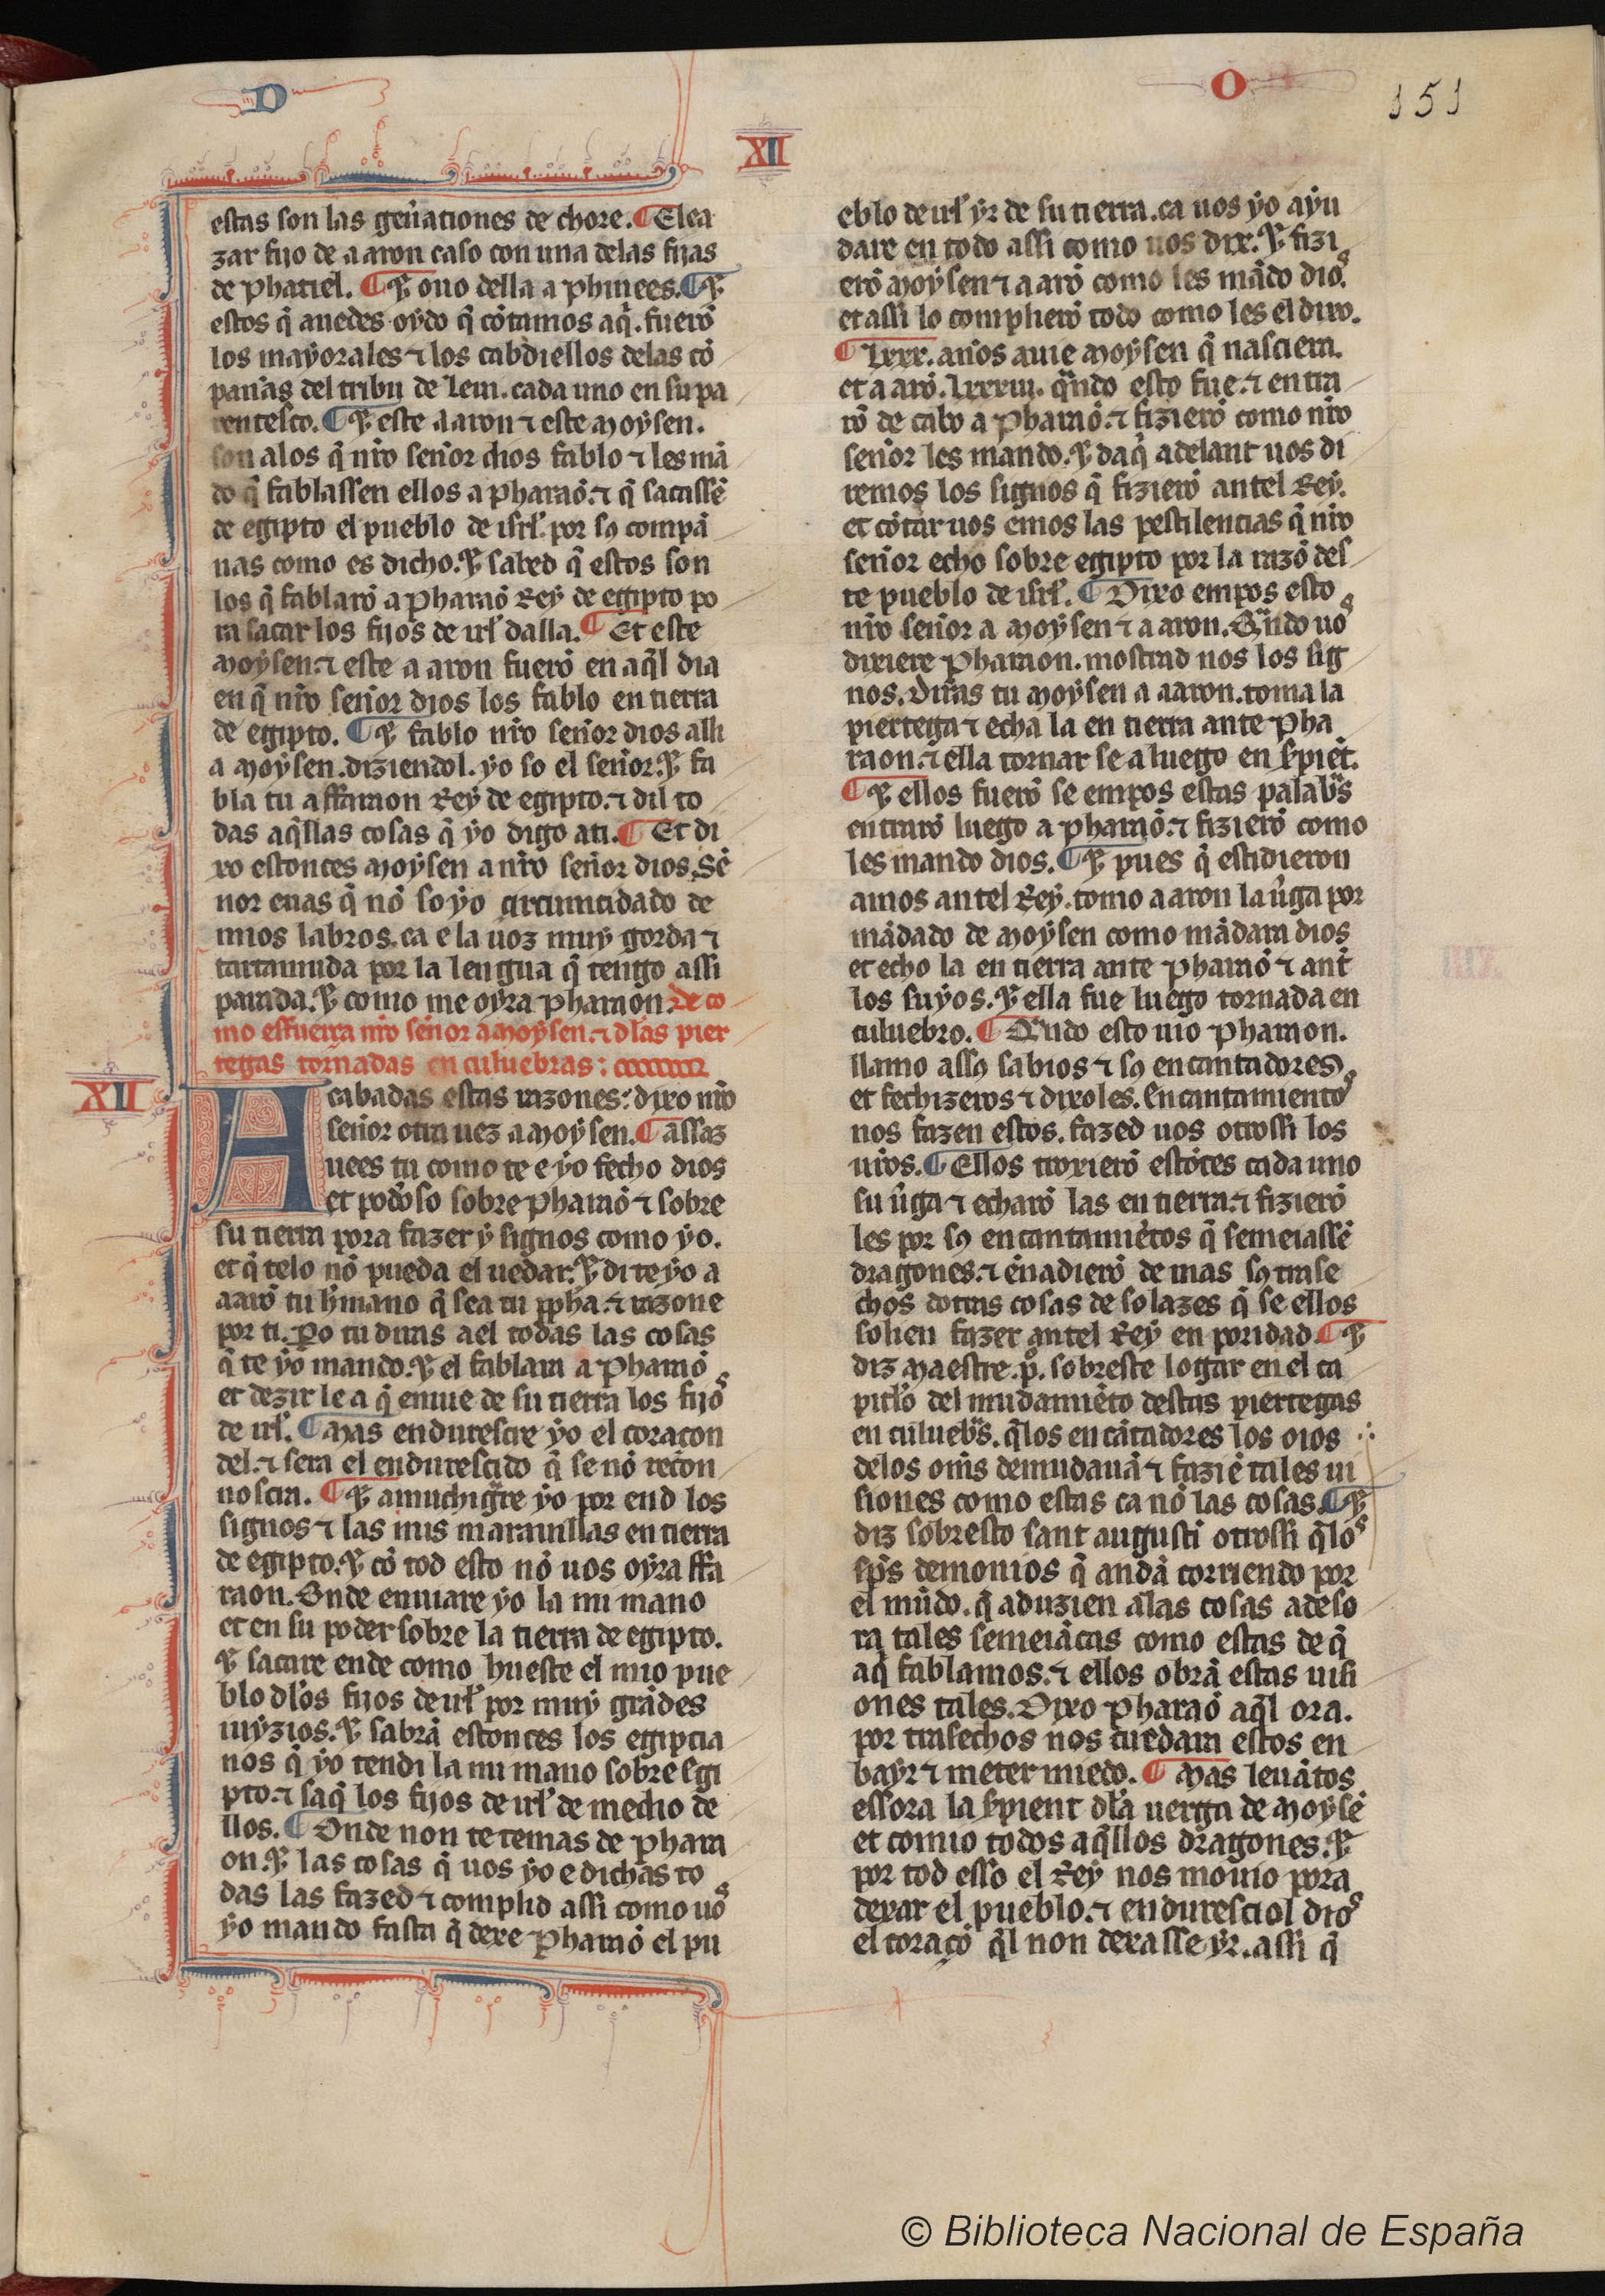 D
O
151
XII
estas son las geñationes de chore. ¶ Elea
zar fijo de aaron caso con una delas fijas
de phatiel. ¶ Et ouo della a phinees. ¶ Et
estos q̃ auedes oydo q̃ cõtamos aq̃. fuerõ
los mayorales ⁊ los cabdiellos delas cõ
panñas del tribu de leui. cada uno en su pa
rentesco. ¶ Et este aaron ⁊ este moysen.
son alos q̃ nr̃o señor dios fablo ⁊ les mã
do q̃ fablassen ellos a pharaõ. ⁊ q̃ sacassẽ
de egipto el pueblo de isrl̃. por sꝯ compã
nas como es dicho. Et sabed q̃ estos son
los q̃ fablarõ a pharaõ Rey de egipto po
ra sacar los fijos de irl̃ dalla. ¶ Et este
moysen. ⁊ este aaron fuerõ en aq̃l dia
en q̃ nr̃o señor dios los fablo en tierra
de egipto. ¶ Et fablo nr̃o señor dios alli
a moysen. diziendol. yo so el señor. Et fa
bla tu a ffaraon Rey de egipto. ⁊ dil to
das aq̃llas cosas q̃ yo digo ati. ¶ Et di
xo estonces moysen a nr̃o señor dios. Sẽ
nor euas q̃ nõ so yo circumcidado de
mios labros. ca e la uoz muy gorda ⁊
tartamuda por la lengua q̃ tengo assi
parada. Et como me oyra pharaon. De co
mo esfuerça nr̃o señor a moysen. ⁊ dlas pier
tegas tornadas en culuebras:
XII
Acabadas estas razones: dixo nr̃o
señor otra uez a moysen. ¶ assaz
uees tu como te e yo fecho dios
et pod̃oso sobre pharaõ ⁊ sobre
su tierra pora fazer y signos como yo.
et q̃ telo nõ pueda el uedar. Et dire yo a
aarõ tu h̃mano q̃ sea tu ppħa. ⁊ razone
por ti. Ꝑo tu diras ael todas las cosas
q̃ te yo mando. Et el fablara a pharaõ
et dezir le a q̃ enuie de su tierra los fijos
de irl̃. ¶ Mas endurescre yo el coraçon
del. ⁊ sera el endurescido q̃ se nõ recon
nosçra. ¶ Et amuchigᵃre yo por end los
signos ⁊ las mis marauillas en tierra
de egipto. Et cõ tod esto nõ uos oyra ffa
raon. Onde enuiare yo la mi mano
et en su poder sobre la tierra de egipto.
Et sacare ende como hueste el mio pue
blo dl̃os fijos de irl̃ por muy grãdes
iuyzios. Et sabrã estonces los egipcia
nos q̃ yo tendi la mi mano sobre Egi
pto. ⁊ saq̃ los fijos de irl̃ de medio de
llos. ¶ Onde non te temas de phara
on. Et las cosas q̃ uos yo e dichas to
das las fazed ⁊ complid assi como uos
yo mando fasta q̃ dexe pharaõ el pu
eblo de irl̃ yr de su tierra. ca uos yo ayu
dare en todo assi como uos dixe. Et fizi
erõ moysen ⁊ aarõ como les mãdo dios.
et assi lo complierõ todo como les el dixo.
¶ Lxxx. años auie moysen q̃ nasciera.
et aarõ. Lxxxiii. qᵃndo esto fue. ⁊ entra
rõ de cabo a pharaõ. ⁊ fizierõ como nr̃o
señor les mando. Et daq̃ adelant uos di
remos los signos q̃ fizierõ antel Rey.
et cõtar uos emos las pestilencias q̃ nr̃o
señor echo sobre egipto por la razõ des
te pueblo de isrl̃. ¶ Dixo empos esto
nr̃o señor a moysen ⁊ aaron. Qᵃndo uos
dixiere pharaon. mostrad nos los sig
nos. diras tu moysen a aaron. toma la
piertega ⁊ echa la en tierra ante pha
raon. ⁊ ella tornar se a luego en s̃piẽt.
¶ Et ellos fuerõ se empos estas palabᵃs
entrarõ luego a pharaõ. ⁊ fizierõ como
les mando dios. ¶ Et pues q̃ estidieron
amos antel Rey. tomo aaron la ũga por
mãdado de moysen como mãdara dios
et echo la en tierra ante pharaõ ⁊ ant̃
los suyos. Et ella fue luego tornada en
culuebro. ¶ Qᵃndo esto uio pharaon.
llamo assꝯ sabios ⁊ sꝯ encantadores.
et fechizeros ⁊ dixoles. Encantamientos
nos fazen estos. fazed uos otrossi los
ur̃os. ¶ Ellos troxierõ estõces cada uno
su ũga ⁊ echarõ las en tierra. ⁊ fizierõ
les por sꝯ encantamiẽtos q̃ semeiassẽ
dragones. ⁊ eñadierõ de mas sꝯ trase
chos dotras cosas de solazes q̃ se ellos
solien fazer antel Rey en poridad. ¶ Et
diz Maestre. p̃. sobreste logar en el ca
pitl̃o del mudamiẽto destas piertegas
en culuebᵃs. q̃los encãtadores los oios
delos oms̃ demudauã ⁊ faziẽ tales ui
siones como estas ca nõ las cosas. ¶ Et
diz sobresto sant augusti otrossi q̃los
sp̃s demonios q̃ andã corriendo por
el mũdo. q̃ aduzien alas cosas adeso
ra tales semeiãças como estas de q̃
aq̃ fablamos. ⁊ ellos obrã estas uisi
ones tales. Dixo pharaõ aq̃l ora.
por trasechos nos cuedara estos en
bayr ⁊ meter miedo. ¶ Mas leuãtos
essora la s̃pient dl̃a uerga de moysẽ
et comio todos aq̃llos dragones. Et
por tod esso el Rey nos mouio pora
dexar el pueblo. ⁊ enduresciol dios
el coraçõ q̃l non dexasse yr. assi q̃
© Biblioteca Nacional de España